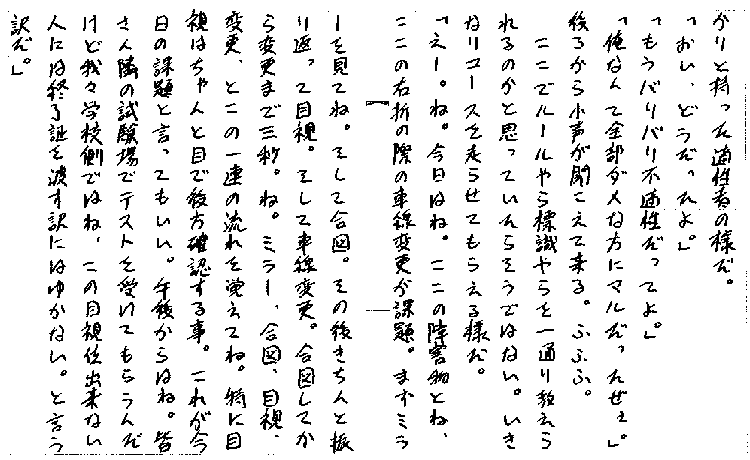 がりと持った適性者の様だ。
「おい、どうだったよ。」
「もうバリバリ不適性だってよ。」
「俺なんて全部ダメな方にマルだったぜェ。」
後ろから小声が聞こえて来る。ふふふ。
ここでルールやら標識やらを一通り教えら
れるのかと思っていたらそうではない。いき
なりコースを走らせてもらえる様だ。
「えー。ね。今日はね。ここの障害物とね、
ここの右折の際の車線変更が課題。まずミラ
ーを見てね。そして合図。その後きちんと振
り返って目視。そして車線変更。合図してか
ら変更まで三秒。ね。ミラー、合図、目視、
変更、とこの一連の流れを覚えてね。特に目
視はちゃんと目で後方確認する事。これが今
日の課題と言ってもいい。午後からはね。皆
さん隣の試験場でテストを受けてもらうんだ
けど我々学校側ではね、この目視位出来ない
人には終了証を渡す訳にはゆかない。と言う
訳だ。」